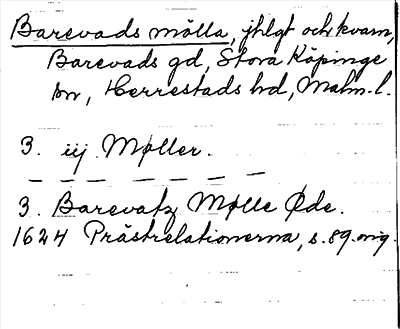 Barevads mölla, jhlgt och kvarn,
Barevads gd, Stora Köpinge
sn, Herrestads hd, Malm. l.
3. iij Møller.
3. Barevatz Mølle Øde.
1624 Prästrelationerna, s. 89. orig.